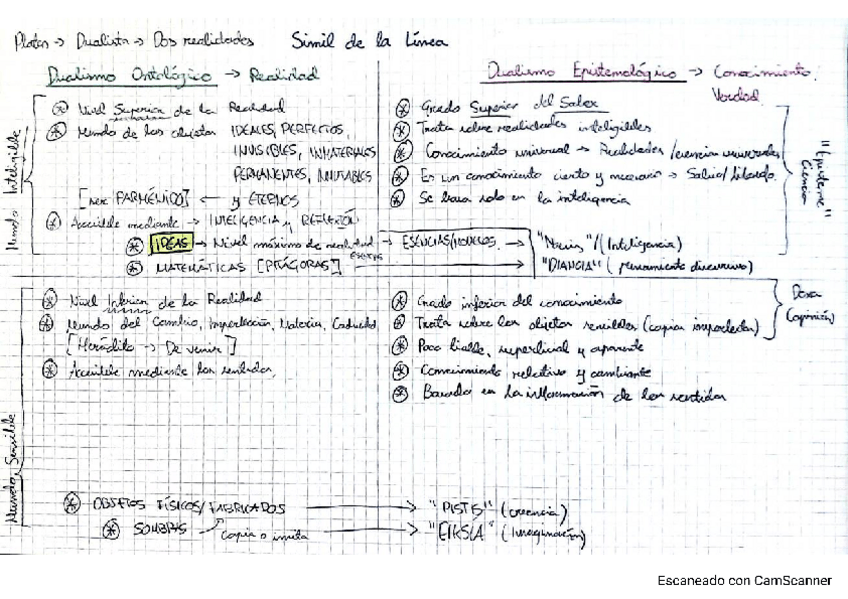 Platón → Dualista → Dos realidades
Símil de la Línea
Dualismo Ontológico → Realidad
Mundo Inteligible
Nivel Superior de la Realidad
Mundo de los objetos IDEALES, PERFECTOS,
INVISIBLES, INMATERIALES
PERMANENTES, INMUTABLES
[ser PARMÉNIDO] ← y ETERNOS
Accesible mediante → INTELIGENCIA y REFLEXIÓN
IDEAS → Nivel máximo de realidad → ESENCIAS/MODELOS
MATEMÁTICAS [PITÁGORAS]
Dualismo Epistemológico → Conocimiento.
Verdad
Grado Superior del Saber
Trata sobre realidades inteligibles
Conocimiento universal → Realidades/esencias universales
Es un conocimiento cierto y necesario →
Se basa solo en la inteligencia
"Episteme"
Ciencia
"Noesis"/(Inteligencia)
"DIANOIA" (pensamiento discursivo)
Mundo Sensible
Nivel Inferior de la Realidad
Mundo del Cambio, Imperfección, Materia, Caducidad
[Heráclito → Devenir]
Accesible mediante los sentidos,
OBJETOS FÍSICOS/FABRICADOS
SOMBRAS
copia o imita
Grado inferior del conocimiento
Trata sobre los objetos sensibles (copias imperfectas)
Poco fiable, superficial y aparente
Conocimiento relativo y cambiante
Basado en la información de los sentidos
Doxa
(opinión)
"PISTIS" (creencia)
"EIKSIA" (Imaginación)
Escaneado con CamScanner